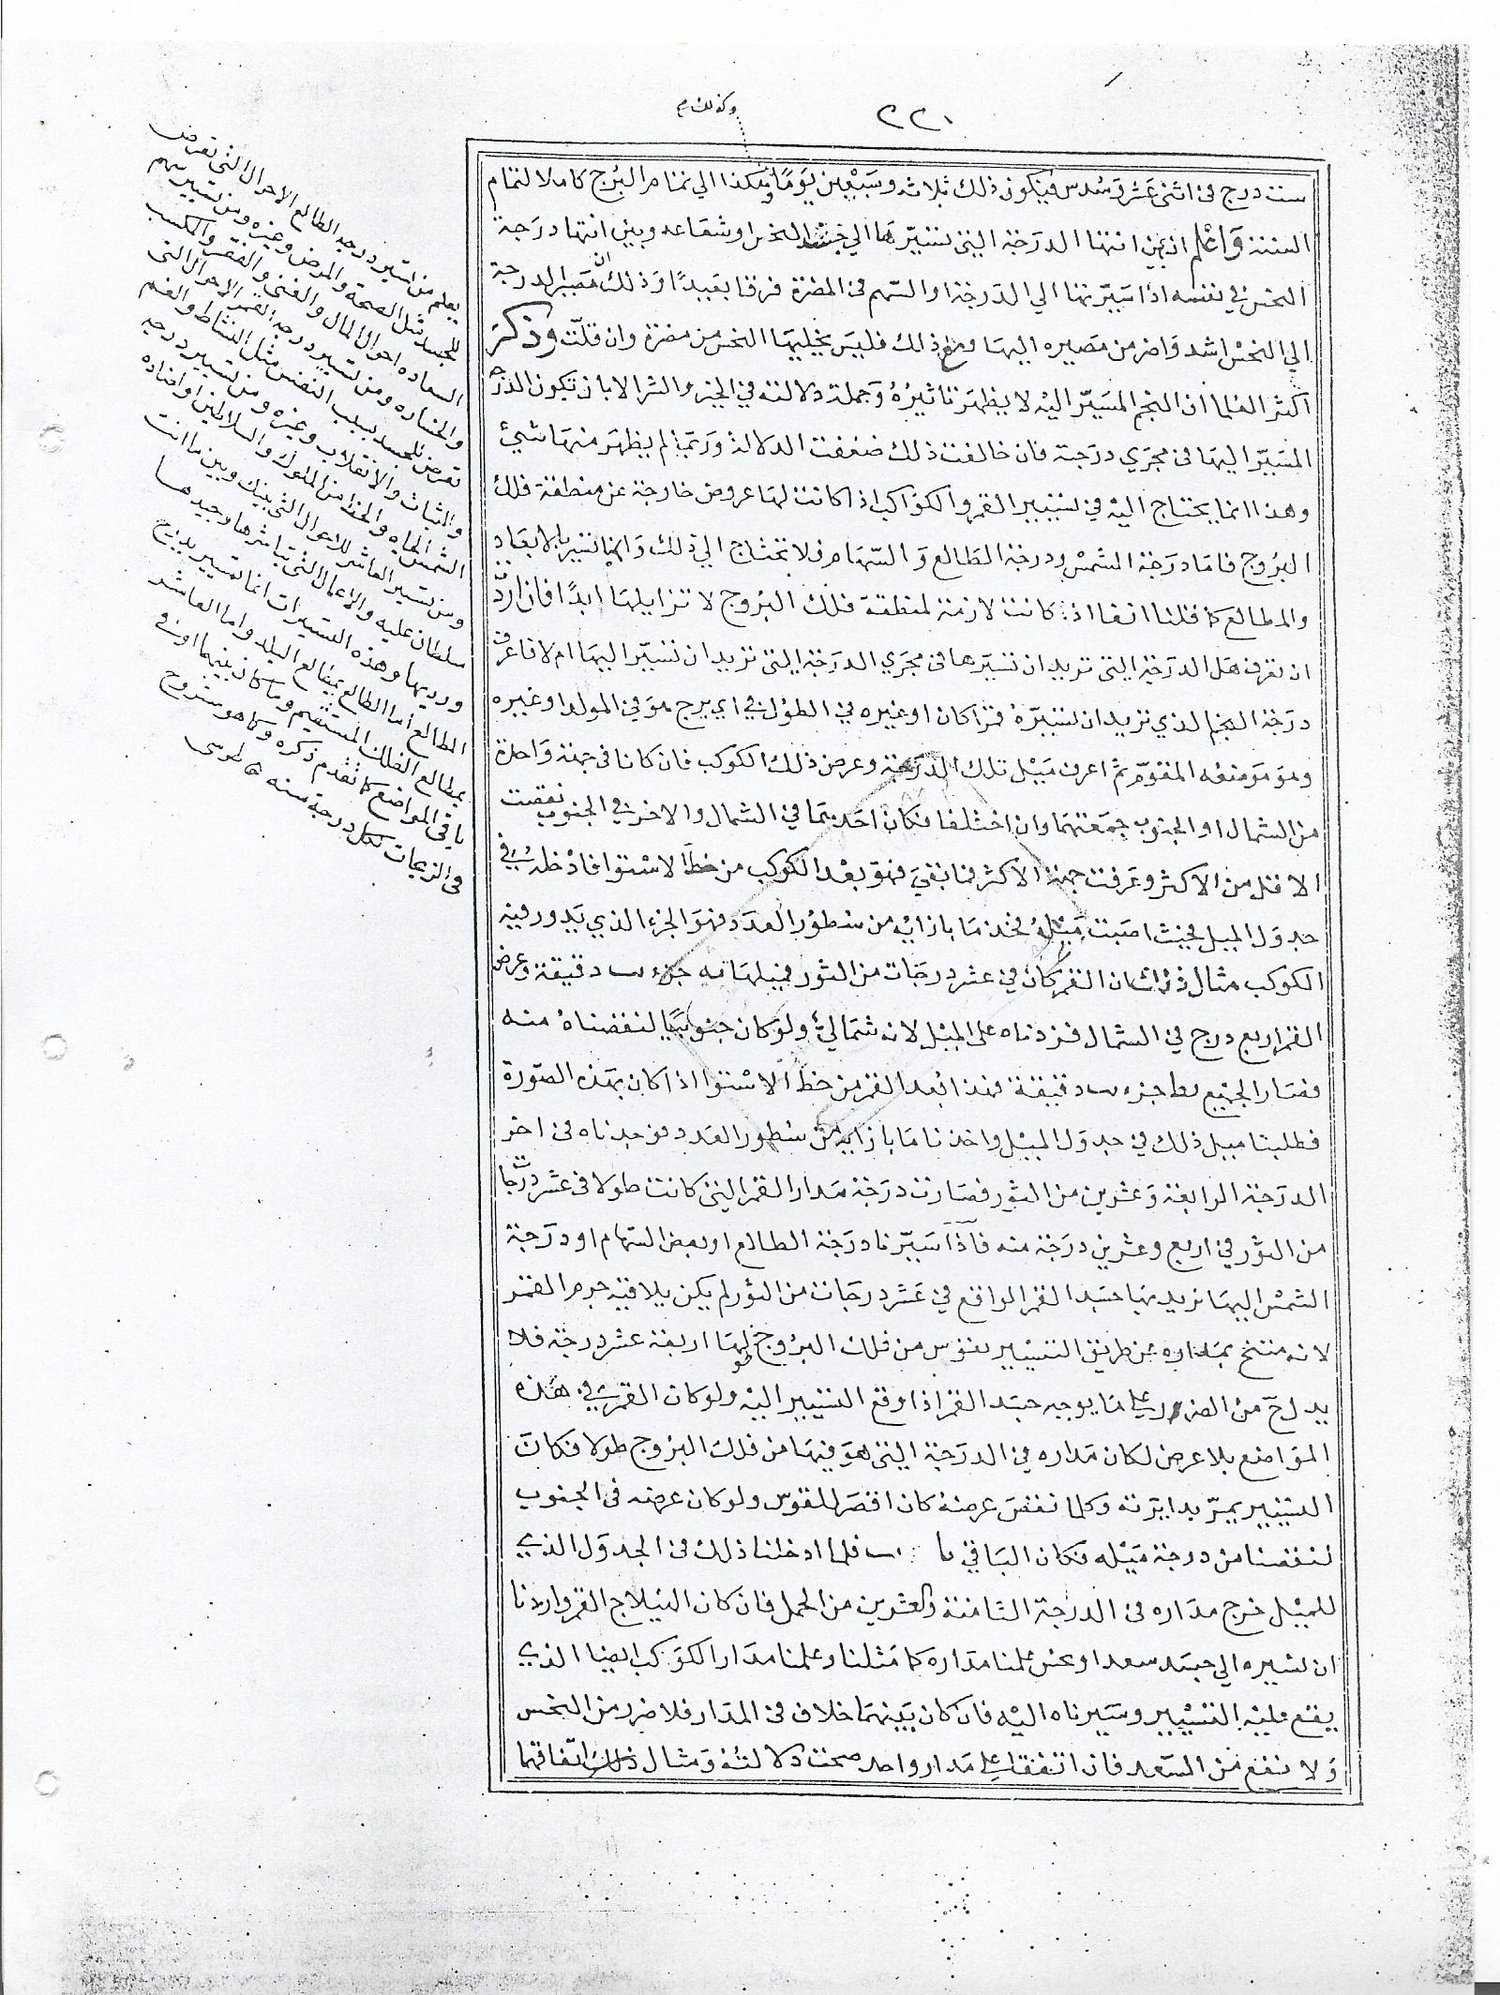 ٢٢٠
وكذلك م
ست درج في اثني عشر وسدس فيكون ذلك ثلاثه وسبعين يوما وهكذا الي تمام البرج كاملا لتمام
السنة واعلم ان بين انتها الدرجة التي تسيرها الي جسد النحس او شعاعه وبين انتها درجة
النحس في نفسه اذا سيرتها الي الدرجة او السهم في المضرة فرقا بعيدا وذلك ان مصير الدرجة
الي النحس اشد واضر من مصيره اليها ومع ذلك فليس يخليها النحس من مضرة وان قلت وذكر
اكثر العلما ان النجم المسير اليه لا يظهر تاثيره وجملة دلالته في الخير والشر الا بان تكون الدرج
المسير اليها في مجري درجته فان خالفت ذلك ضعفت الدلالة وربما لم يظهر منها شيئ
وهذا انما يحتاج اليه في تسيير القمر والكواكب اذا كانت لها عروض خارجة عن منطقة فلك
البروج فاما درجة الشمس ودرجة الطالع والسهام فلا تحتاج الي ذلك وانما تسير بالابعاد
والمطالع كما قلنا انفا اذ كانت لازمة لمنطقة فلك البروج لا تزايلها ابدا فان اردت
ان تعرف هل الدرجة التي تريد ان تسيرها في مجري الدرجة التي تريد ان تسير اليها ام لا فاعرف
درجة النجم الذي تريد ان تسيره قمرا كان او غيره في الطول في اي برج هو في المولد او غيره
وهو موضعه المقوم ثم اعرف ميل تلك الدرجة وعرض ذلك الكوكب فان كانا في جهة واحدة
من الشمال او الجنوب جمعتهما وان اختلفا فكان احدهما في الشمال والاخر في الجنوب نقصت
الاقل من الاكثر وعرفت جهة الاكثر فما بقي فهو بعد الكوكب من خط الاستوا فادخله في
جدول الميل فحيث اصبت ميله فخذ ما بازايه من سطور العدد فهو الجزء الذي يدور فيه
الكوكب مثال ذلك ان القمر كان في عشر درجات من الثور فميلها يه جزء دقيقة وعرض
القمر اربع درج في الشمال فزدناه علي الميل لانه شمالي ولو كان جنوبيا لنقصناه منه
فصار الجميع يط جزء دقيقة فهذا بعد القمر من خط الاستوا اذا كان بهذه الصورة
فطلبنا ميل ذلك في جدول الميل واخذنا ما بازايه من سطور العدد فوجدناه في اخر
الدرجة الرابعة وعشرين من الثور فصارت درجة مدار القمر التي كانت طولا في عشر درجات
من الثور في اربع وعشرين درجة منه فاذا سيرنا درجة الطالع او بعض السهام او درجة
الشمس اليها نريد بها جسد القمر الواقع في عشر درجات من الثور لم يكن يلاقيه جرم القمر
لانه متنح بمداره عن طريق التسيير بقوس من فلك البروج لها اربعة عشر درجة فلا
يدل من الضرر علي ما يوجبه جسد القمر اذا وقع التسيير اليه ولو كان القمر في هذه
المواضع بلا عرض لكان مداره في الدرجة التي هو فيها من فلك البروج طولا فكان
التسيير يمر بدايرته وكلما نقص عرضه كان اقصر للقوس ولو كان عرضه في الجنوب
لنقصنا من درجة ميله فكان الباقي يا فلما ادخلنا ذلك في الجدول الذي
للميل خرج مداره في الدرجة الثامنة والعشرين من الحمل فان كان الهيلاج القمر واردنا
ان نسيره الي جسد سعد او نحس علمنا مداره كما مثلنا وعلمنا مدار الكوكب ايضا الذي
يقع عليه التسيير وسيرناه اليه فان كان بينهما خلاف في المدار فلا ضرر من النحس
ولا نفع من السعد فان اتفقا علي مدار واحد صحت دلالته ومثال ذلك اتفاقهما
يعلم من تسيير درجه الطالع الاحوال التي تعرض
للجسد مثل الصحة والمرض وغيره ومن تسيير سهم
السعاده احوال المال والغنى والفقر والكسب
والخساره ومن تسيير درجه القمر الاحوال التي
تعرض للجسد بسبب النفس مثل النشاط والغم
والثبات والانقلاب وغيره ومن تسيير درجه
الشمس الجاه والحظ من الملوك والسلاطين او اضداده
ومن تسيير العاشر للاحوال التي بينك وبين ما انت
سلطان عليه والاعمال التي تباشرها وجيدها
ورديها وهذه التسييرات انما تسير بدرج
المطالع اما الطالع بمطالع البلد واما العاشر
بمطالع الفلك المستقيم وما كان بينهما او في
باقي المواضع كما تقدم ذكره وكما هو مشروح
في الزيجات لكل درجة سنه